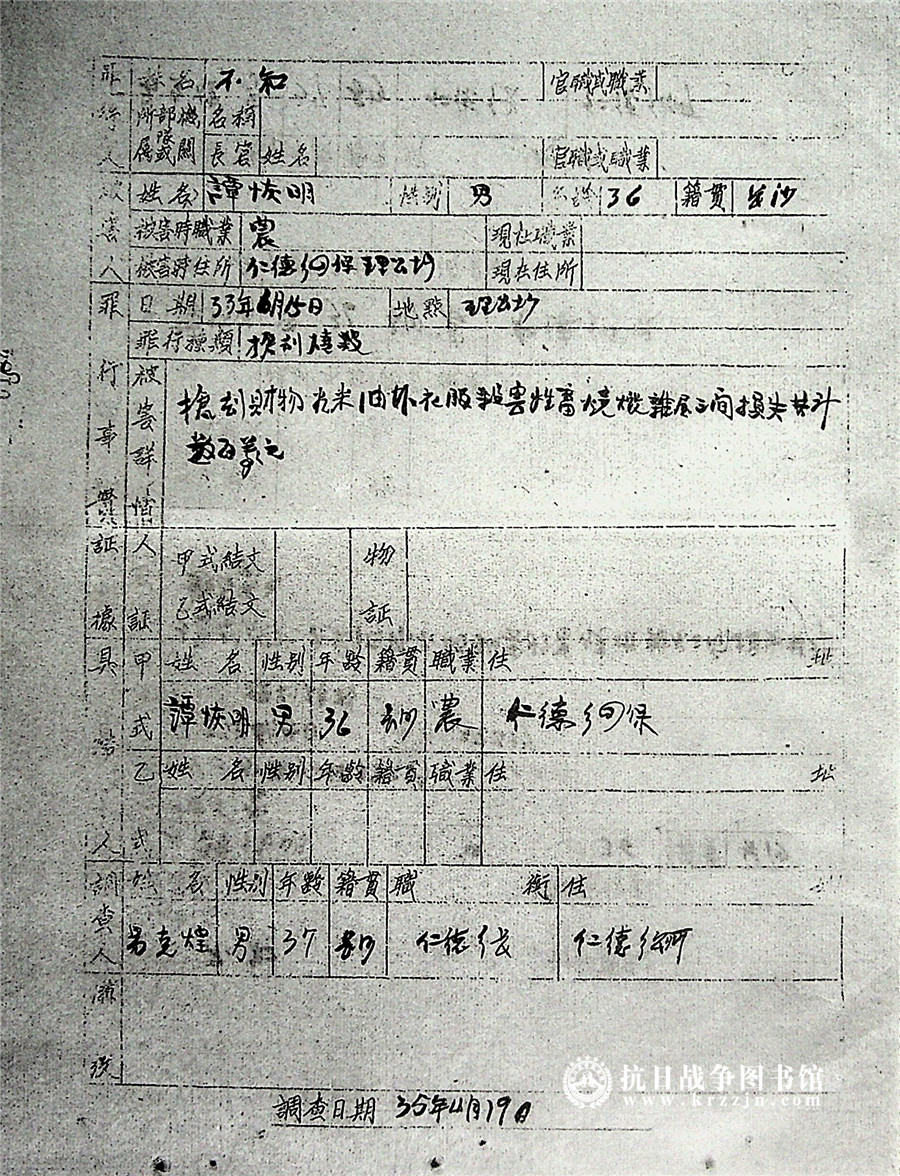 姓名 不知 官職或職業
所屬部隊或機關 名稱
長官 姓名 官職或職業
被害人 姓名 譚恢明 性別 男 年齡 36 籍貫 長沙
被害時職業 農 現在職業
被害時住所 仁德鄉四保 現在住所
罪行事實 日期 33年6月15日 地點
罪行種類
被害詳情 搶刦財物 米油 衣服 牲畜 燒燬雜屋三間損失共計
數百萬元
証據 人証 甲式結文 物証
乙式結文
具結人 甲式 姓名 性別 年齡 籍貫 職業 住址
譚恢明 男 36 長沙 農 仁德鄉四保
乙式 姓名 性別 年齡 籍貫 職業 住址
調查人 姓名 性別 年齡 籍貫 職銜 住址
克煌 男 37 長沙 仁德鄉長 仁德鄉
調查日期 35年4月19日
抗日战争图书馆
www.krzzjn.com